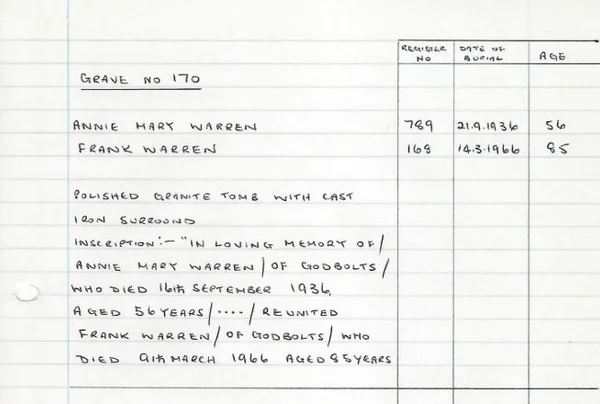 REGISTER NO DATE OF BURIAL AGE
GRAVE NO 170
ANNIE MARY WARREN 789 21.9.1936 56
FRANK WARREN 168 14.3.1966 85
POLISHED GRANITE TOMB WITH CAST
IRON SURROUND
INSCRIPTION:- "IN LOVING MEMORY OF/
ANNIE MARY WARREN/OF GODBOLTS/
WHO DIED 16th SEPTEMBER 1936,
AGED 56 YEARS/..../REUNITED
FRANK WARREN/OF GODBOLTS/WHO
DIED 9th MARCH 1966 AGED 85 YEARS